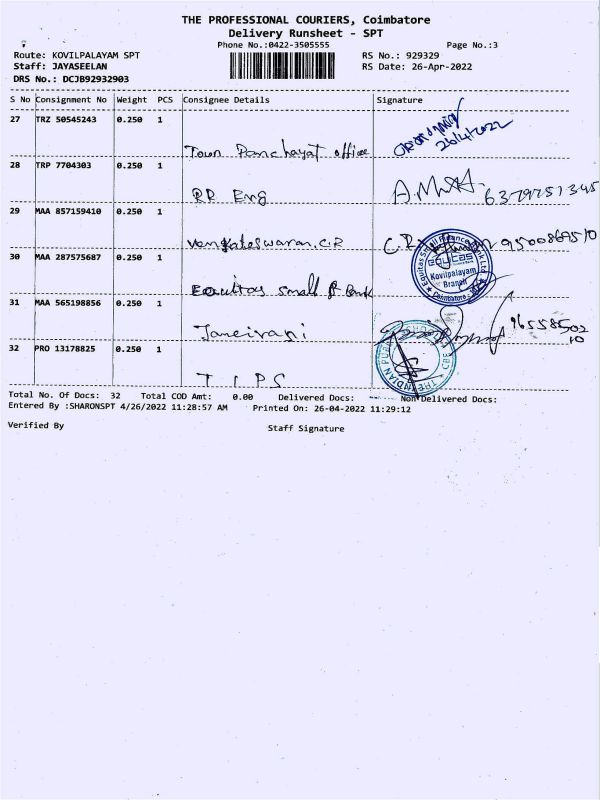 THE PROFESSIONAL COURIERS, Coimbatore
Delivery Runsheet - SPT
Phone No.:0422-3505555 Page No.:3
Route: KOVILPALAYAM SPT RS No.: 929329
Staff: JAYASEELAN RS Date: 26-Apr-2022
DRS No.: DCJB92932903
S No Consignment No Weight PCS Consignee Details Signature
27 TRZ 50545243 0.250 1
Town Panchayat office 26/4/2022
28 TRP 7704303 0.250 1
RR Eng 6379751345
29 MAA 857159410 0.250 1
Vengateswaran.C.R
30 MAA 287575687 0.250 1
Equitas Small Finance Bank Ltd
EQUITAS
Kovilpalayam
Branch
Coimbatore
Equitas small f Bank
31 MAA 565198856 0.250 1
Janeirani
32 PRO 13178825 0.250 1
THE INDIAN PU
CBE
T I P S
Total No. Of Docs: 32 Total COD Amt: 0.00 Delivered Docs: Non Delivered Docs:
Entered By :SHARONSPT 4/26/2022 11:28:57 AM Printed On: 26-04-2022 11:29:12
Verified By Staff Signature